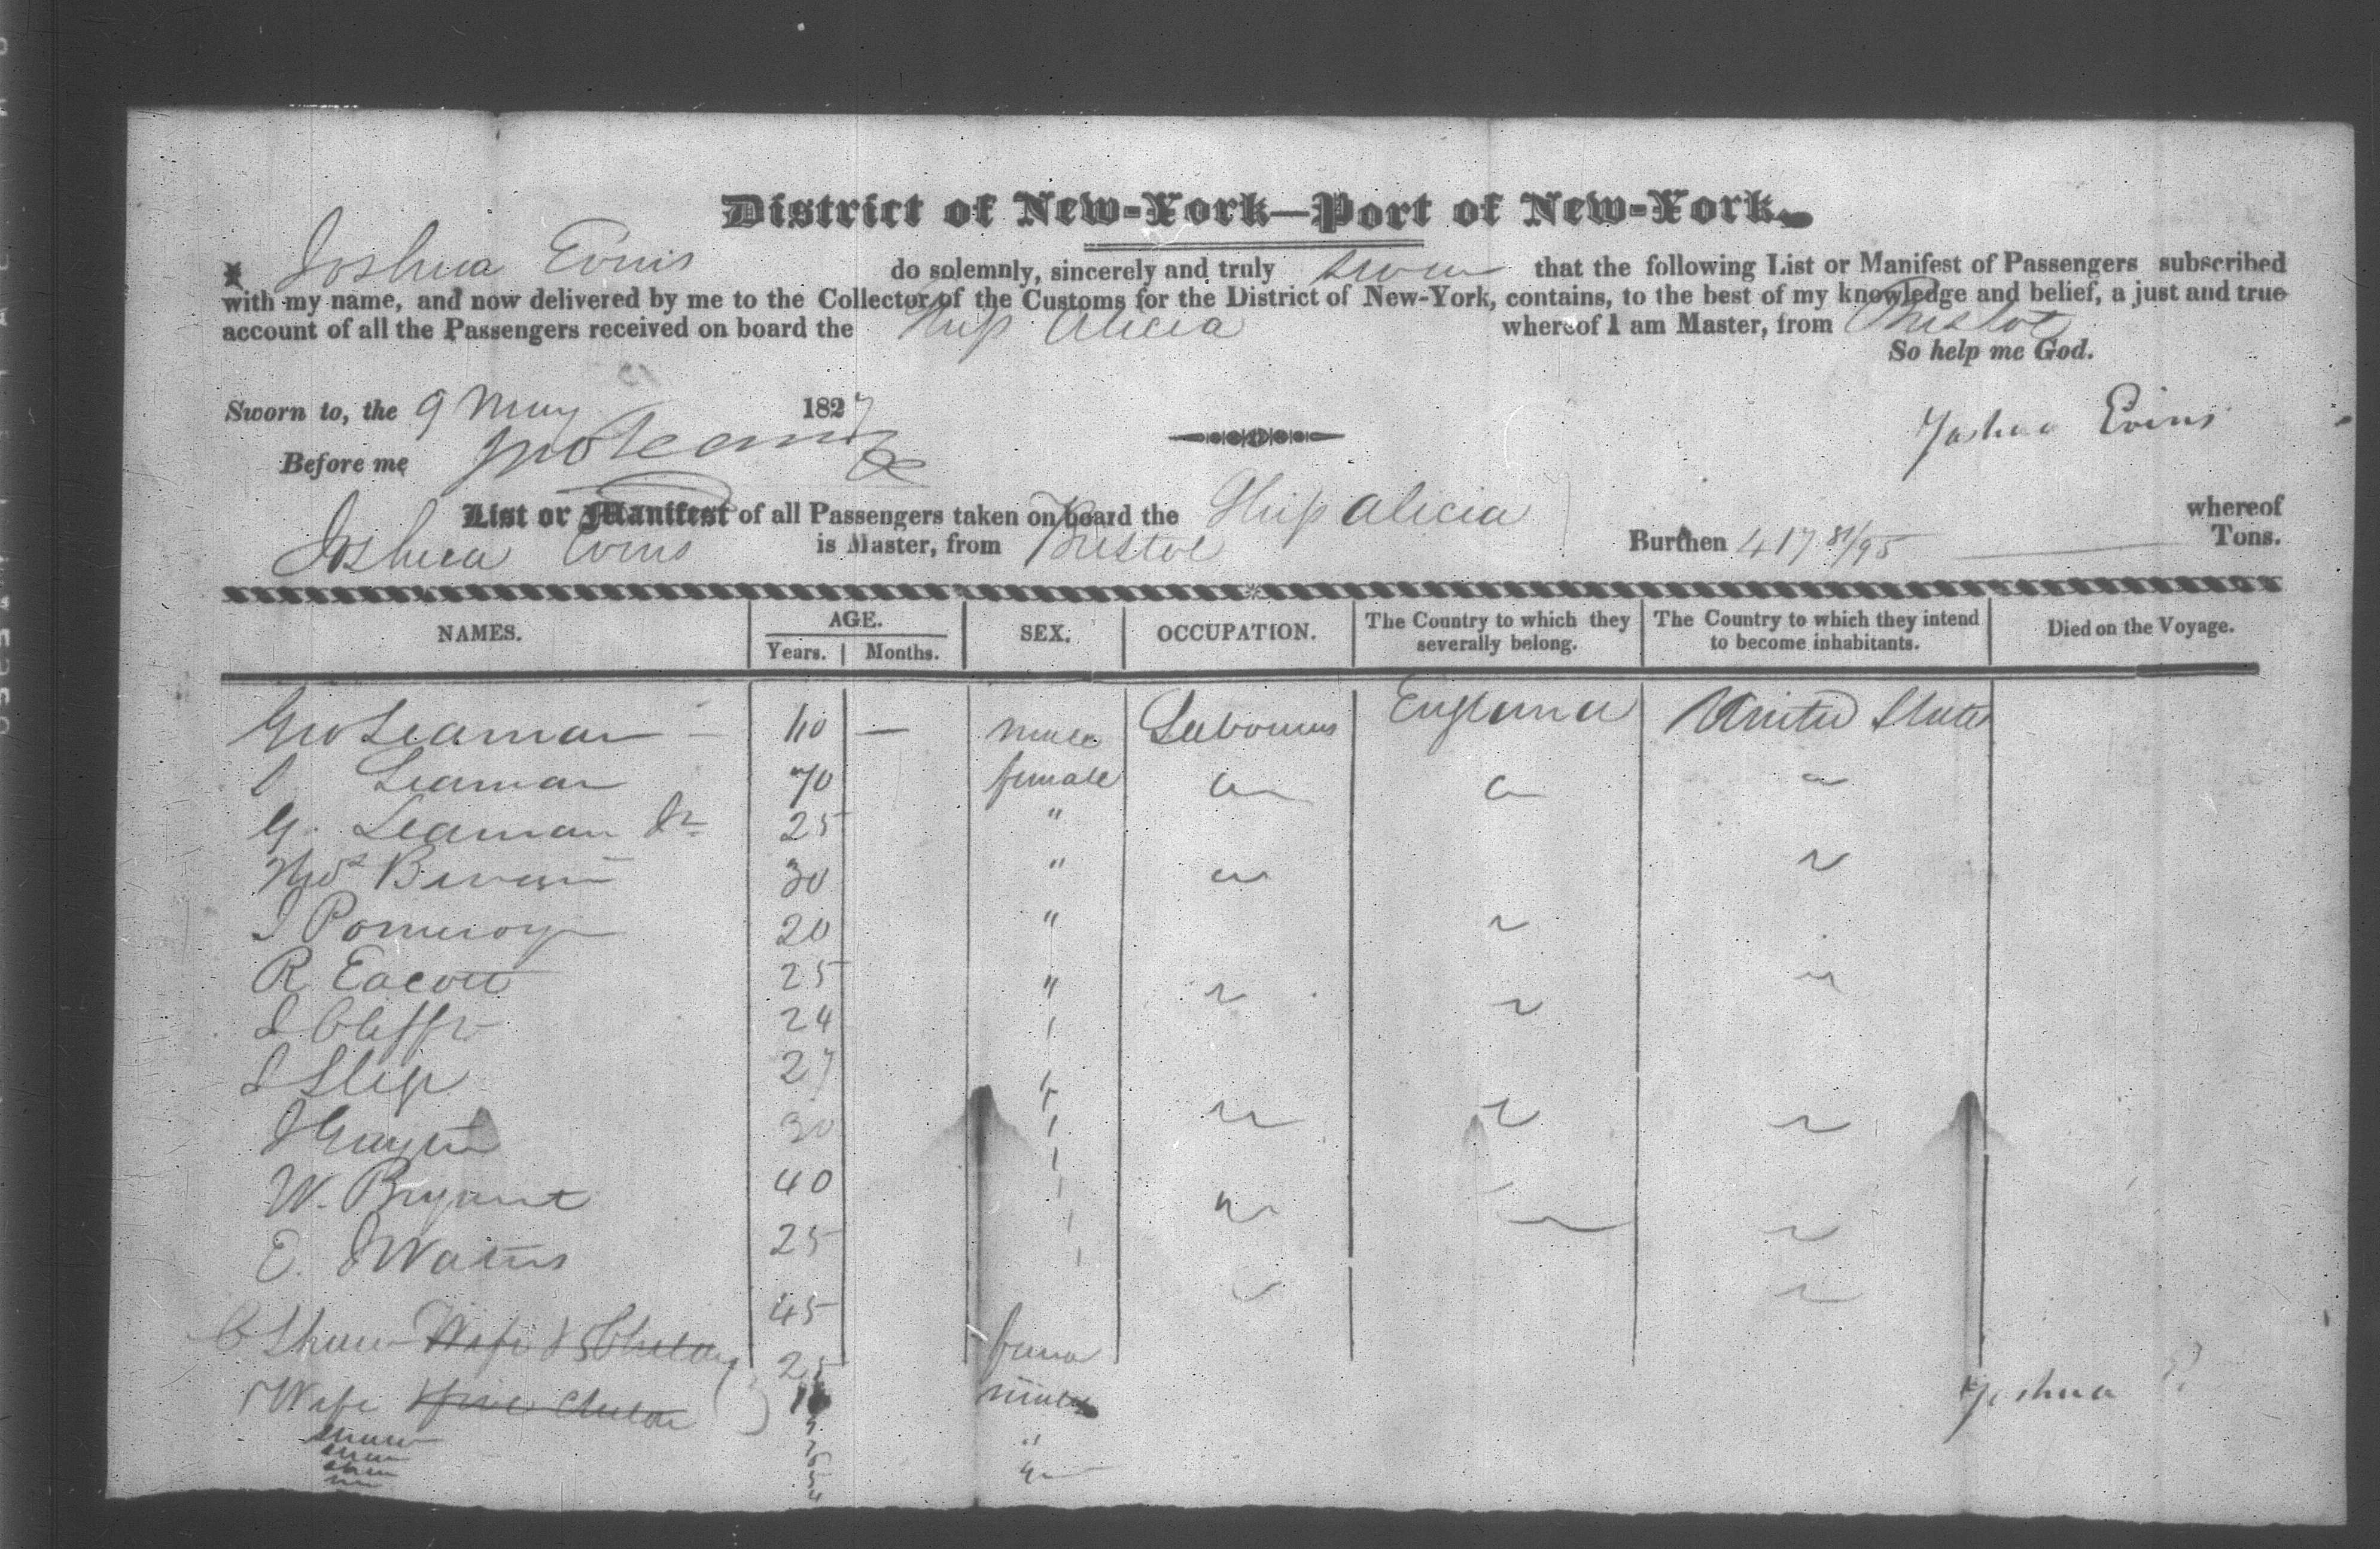 District of New-York—Port of New-York.
I Joshua Evins do solemnly, sincerely and truly swear that the following List or Manifest of Passengers subscribed
with my name, and now delivered by me to the Collector of the Customs for the District of New-York, contains, to the best of my knowledge and belief, a just and true
account of all the Passengers received on board the Ship Alicia whereof I am Master, from Bristol
So help me God.
Sworn to, the 9 May 1827
Joshua Evins
Before me
List or Manifest of all Passengers taken on board the Ship Alicia whereof
Joshua Evins is Master, from Bristol Burthen 417 81/95 Tons.
NAMES. AGE. SEX. OCCUPATION. The Country to which they severally belong. The Country to which they intend to become inhabitants. Died on the Voyage.
Years. Months.
Geo Seaman 40 — male Labourers England United States
Seaman 70 female
G. Seaman Jr 25 "
Thos 30 "
J Pomeroy 20 "
R Eacott 25 "
24
J Slip 27
30
W. Bryant 40
E. J Waters 25
C Shaw Wife & 5 45
Wife five 25 female
male
Joshua E